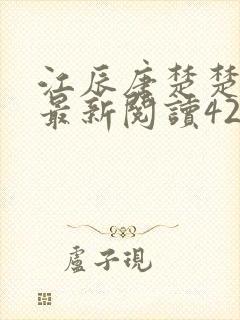 江辰唐楚楚
最新閱讀42
盧子現